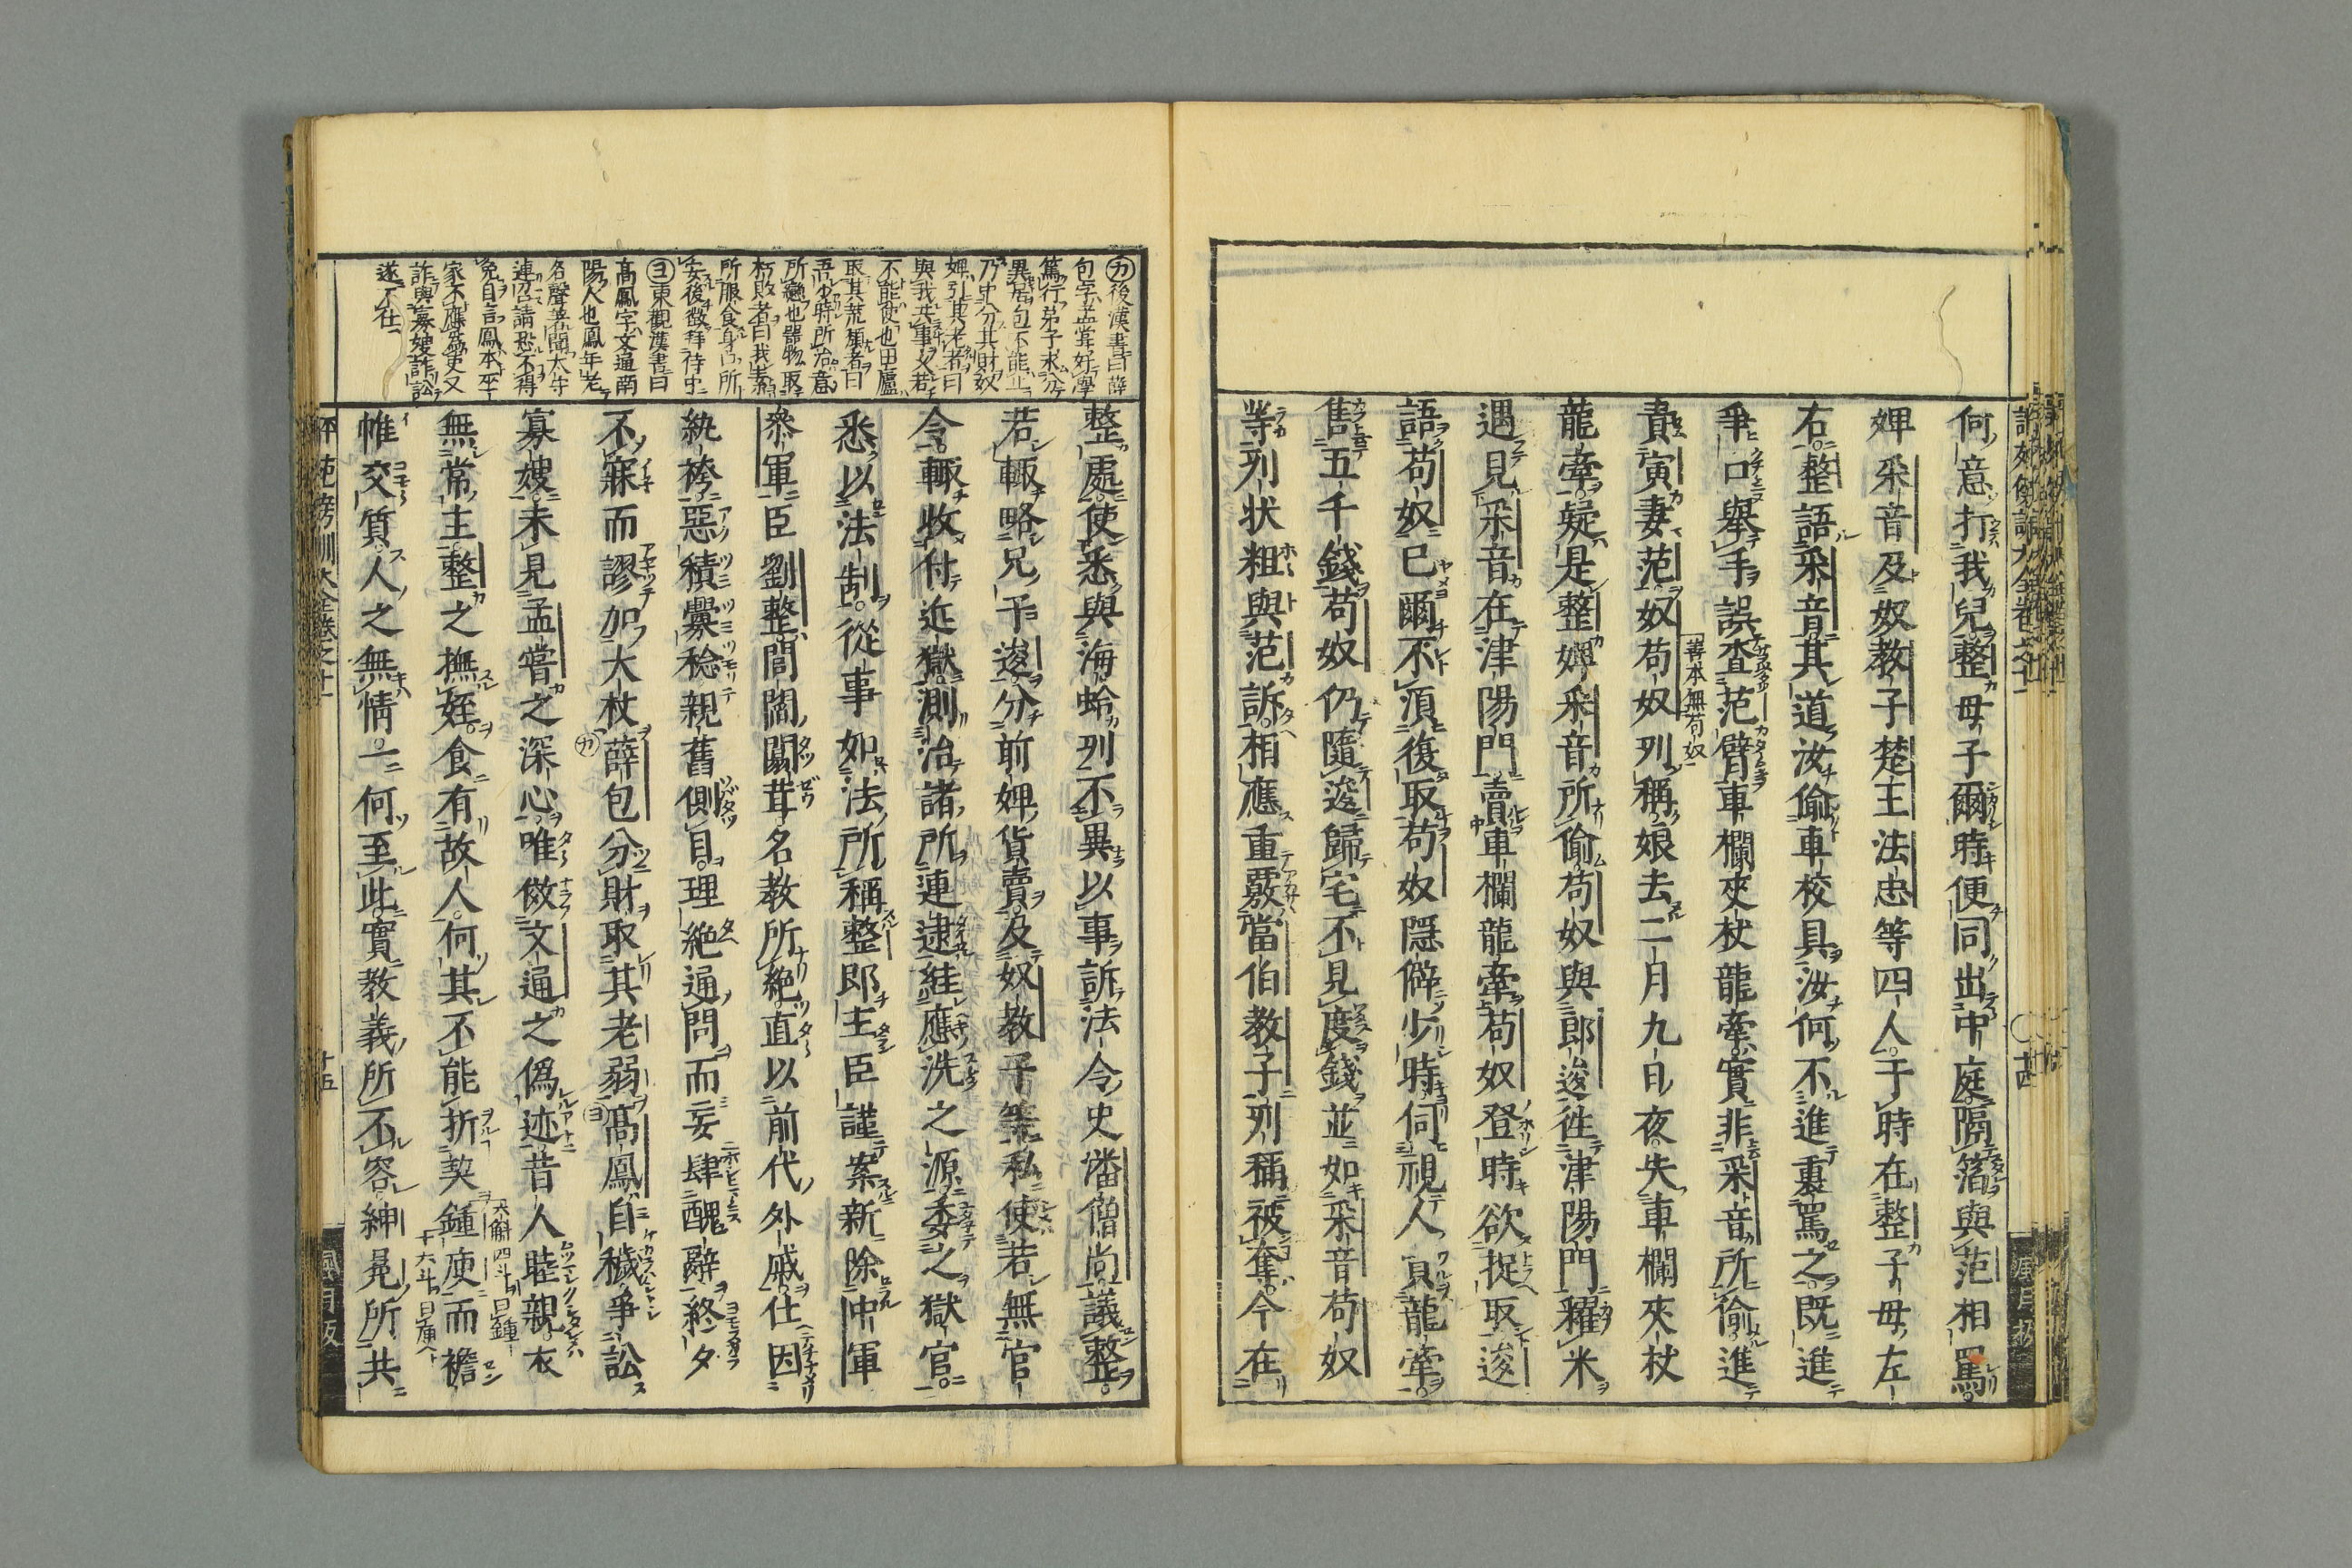 何意打我兒整母子爾時便同出中庭隔箔與范相罵
婢采音及奴教子楚玉法忠等四人于時在整子母左
右整語采音其道汝偷車校具汝何不進裏罵之既進
爭口舉手誤查范臂車欄夾杖龍牽實非采音所偷進
責寅妻范奴苟奴列稱娘去二月九日夜失車欄夾杖
善本無苟奴
龍牽疑是整婢采音所偷苟奴與郎逡徃津陽門糴米
遇見采音在津陽門賣車欄龍牽苟奴登時欲捉取逡
語苟奴已爾不湏復取苟奴隱僻少時伺視人買龍牽
售五千錢苟奴仍隨逡歸宅不見度錢並如采音苟奴
等列状粗與范訴相應重覈當伯教子列稱被奪今在
㋕後漢書曰薛
包字孟嘗好學
篤行弟子求分
異居包不能止
乃中分其財奴
婢引其老者曰
與我共事久若
不能使也田廬
取其荒頓者曰
吾少時所治意
所戀也器物取
朽敗者曰我素
所服食身口所
安後徴拜侍中
㋵東觀漢書曰
髙鳳字文通南
陽人也鳳年老
名聲著聞太守
連召請恐不得
免自言鳳本巫
家不應爲吏又
詐與寡嫂詐訟
遂不仕
整處使悉與海蛤列不異以事訴法令史潘僧尚議整
若輙略兄子逡分前婢貨賣及奴教子等私使若無官
令輙收付近獄測治諸所連逮絓應洗之源委之獄官
悉以法制從事如法所稱整即主臣謹案新除中軍
叅軍臣劉整閭閻闒茸名教所絶直以前代外戚仕因
紈袴惡積釁稔親舊側目理絶通問而妄肆醜辭終夕
不寐而謬加大杖薛包分財取其老弱髙鳳自穢爭訟
寡嫂未見孟嘗之深心唯倣文通之僞迹昔人睦親衣
無常主整之撫姪食有故人何其不能折契鍾庾而襜
六斛四斗曰鍾
十六斗曰庾
帷交質人之無情一何至此實教義所不容紳冕所共
十五